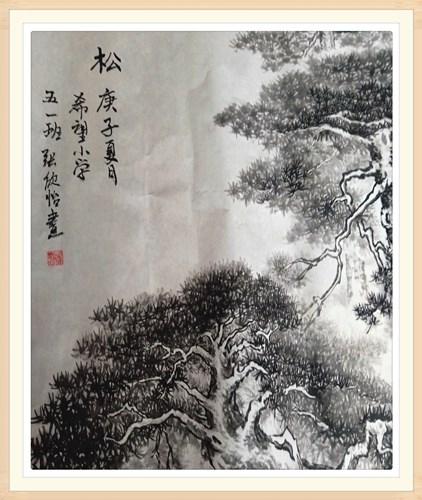 松
庚子夏月
希望小学
五一班 张欣怡画